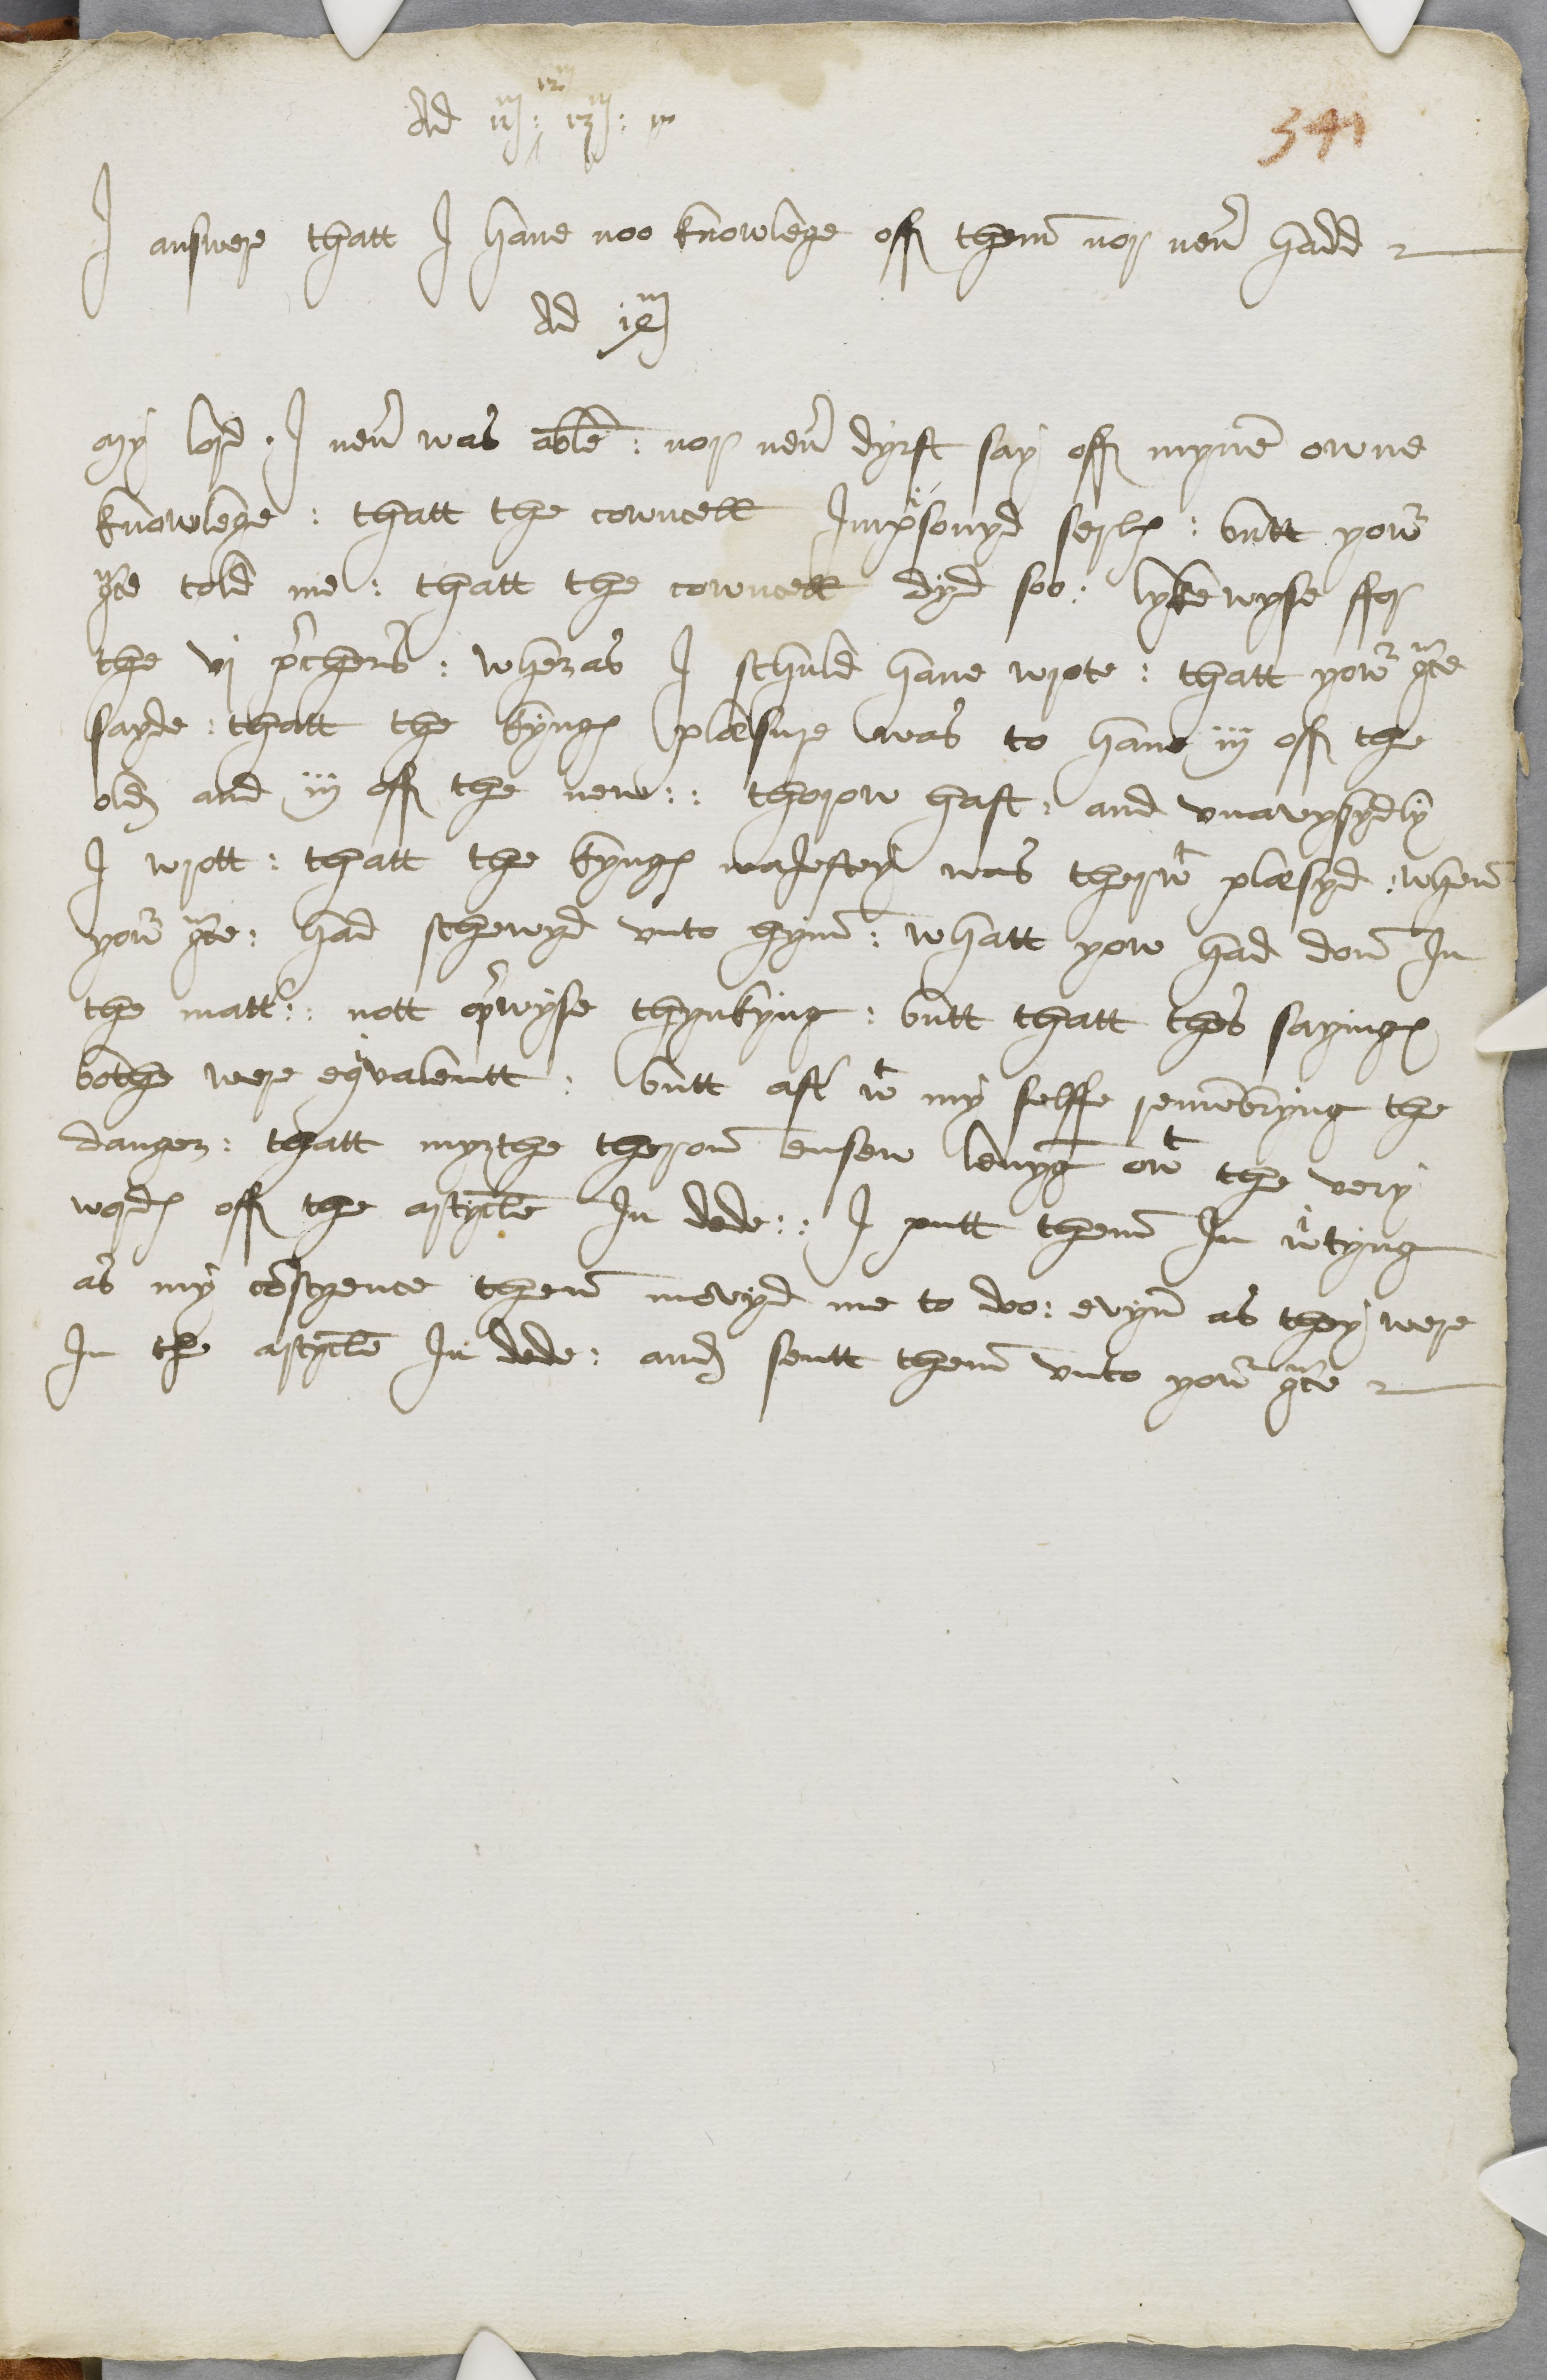 341
I answere thatt I have noo knowlege off them nor neu' hadd
Ad ix m
My lord . I neu' was able : nor neu' dyrst say off myne owne
knowlege : thatt the cowncell Impisonyd serls : butt yowr
gce told me : thatt the cowncell dyd soo : lykewyse ffor
the vj p'chers : wheras I schuld have wrote : thatt yowr gce
sayde : thatt the kyngs plesure was to have iij off the
old and iij off the new : : thorow hast : and vnavysydly
I wrott : thatt the kyngs maJestey was therwt plesyd : when
yowr gce : had schewyd vnto hym : whatt yow had don In
the matt' : : nott oy'wyse thynkyng : butt thatt thes sayings
bothe were eqivalentt : butt aft' wt my selffe remembryng the
danger : thatt myzthe theron ensew levyg owt the very
words off the artycle In dede : : I putt them In writyng
as my coscyence then movyd me to doo : evyn as they were
In the artycle In dede : and sentt them vnto yowr gce